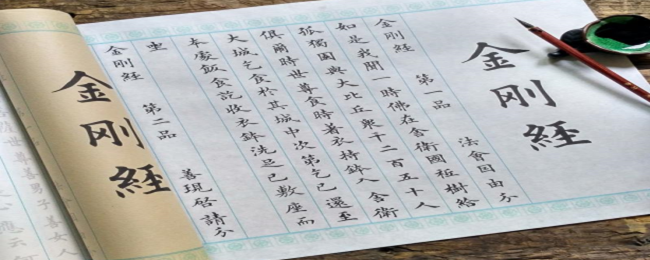 金剛經
金剛經 第一品 法會因由分
如是我聞一時佛在舍衛國祇樹給
孤獨園與大比丘眾千二百五十人
俱爾時世尊食時著衣持鉢入舍衛
大城乞食於其城中次第乞已還至
本處飯食訖收衣鉢洗足已敷座而
坐
金剛經 第二品 善現啓請分
金剛經
世尊善男子善女
應云